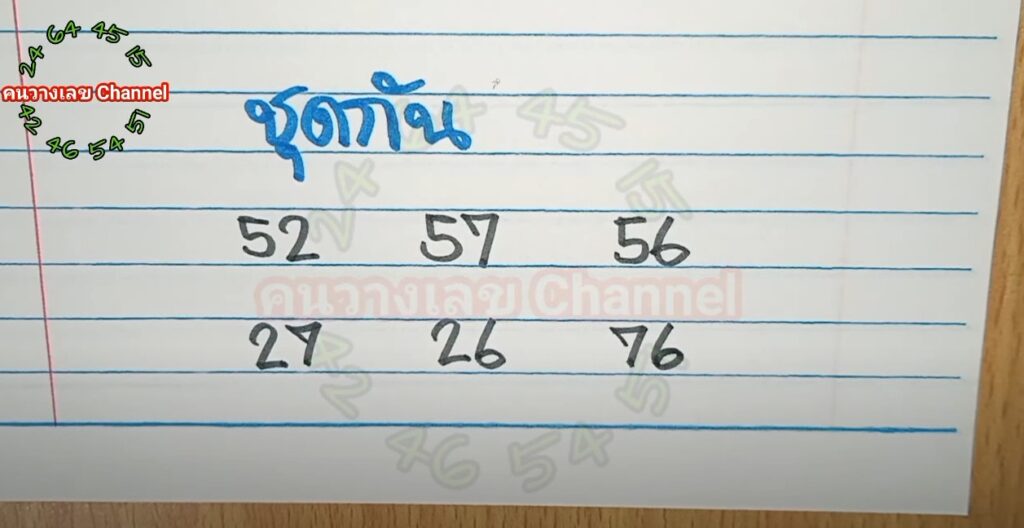 64 45
24 15
คนวางเลข Channel
24 51
46 54
ชุดกัน
24 24 45 15
52 57 56
คนวางเลข Channel
27 26 76
24 51
46 54